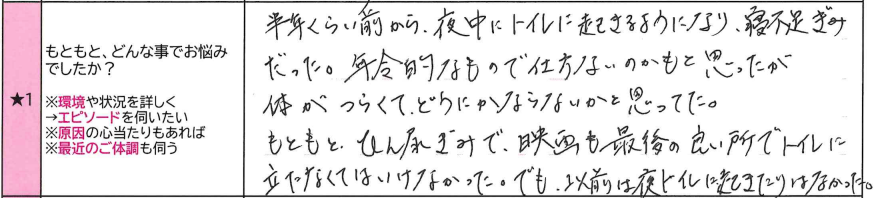 ★1
もともと、どんな事でお悩み
でしたか？
※環境や状況を詳しく
→エピソードを伺いたい
※原因の心当たりもあれば
※最近のご体調も伺う
半年くらい前から、夜中にトイレに起きるようになり、寝不足ぎみ
だった。年令的なもので仕方ないのかもと思ったが
体がつらくて、どうにかならないかと思ってた。
もともと、ひん尿ぎみで、映画も最後の良い所でトイレに
立たなくてはいけなかった。でも、以前は夜トイレに起きたりはなかった。